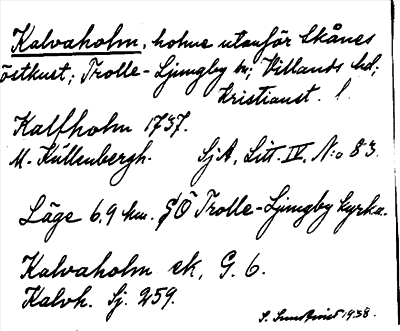 Kalvaholm, holme utanför Skånes
östkust; Trolle-Ljungby sn; Villands hd;
Kristianst. l.
Kalfholm 1737.
M. Kullenbergh. SjA, Litt. IV, N:o 83.
Läge 6,9 km. SÖ Trolle-Ljungby kyrka.
Kalvaholm ek, G. 6.
Kalvh. Sj. 259.
S. 1938.